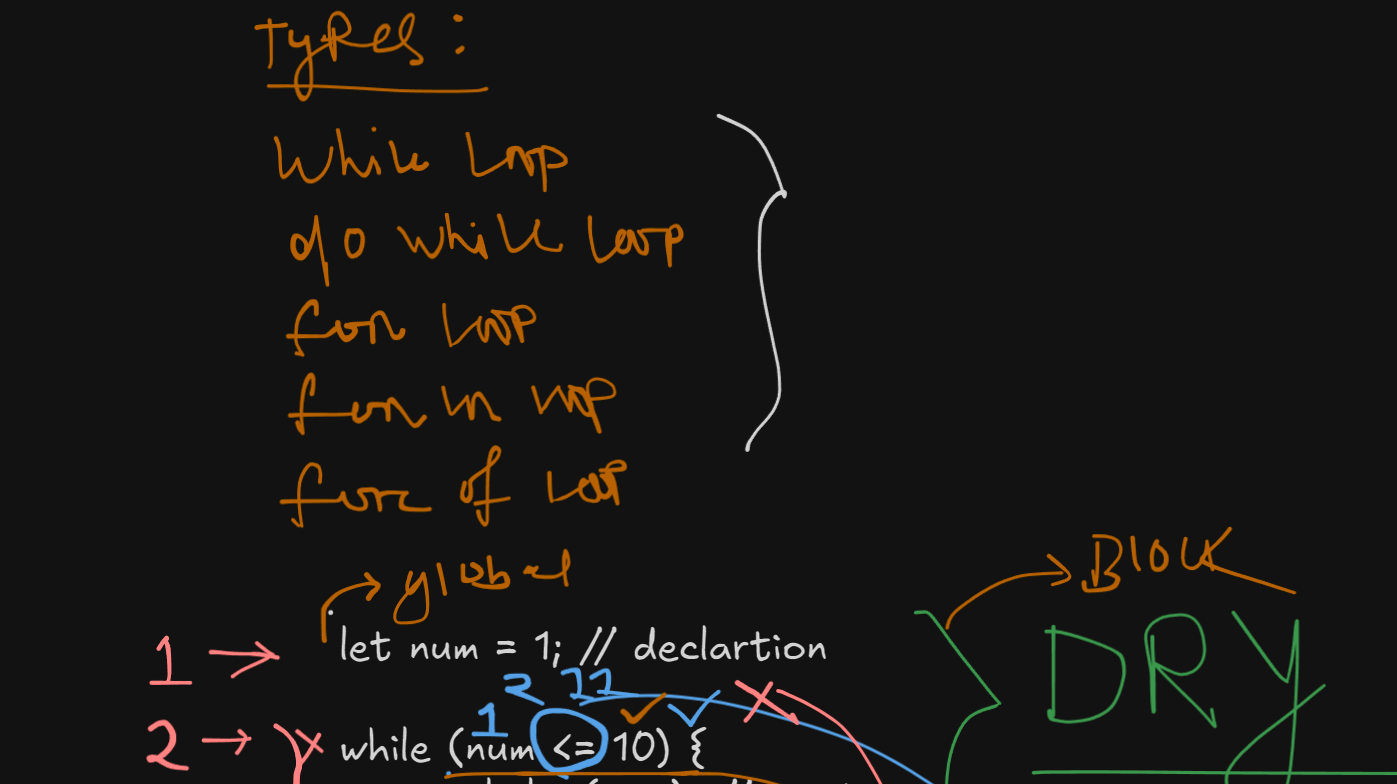 Types:
While Loop
do while loop
for Loop
for in loop
for of Loop
global
Block
1 let num = 1; // declartion
DRY
2 11
1
2 while (num <= 10) {